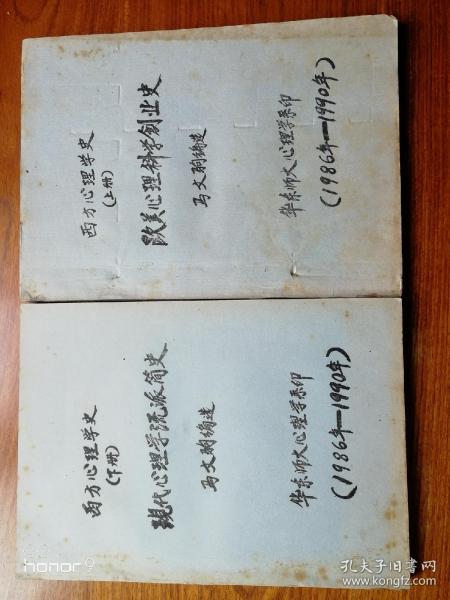 西方心理学史
(上册)
欧美心理科学创业史
马文驹编造
华东师大心理学系印
(1986年—1990年)
西方心理学史
(下册)
现代心理学流派简史
马文驹编造
华东师大心理学系印
(1986年—1990年)
honor 9
孔夫子旧书网
www.kongfz.com